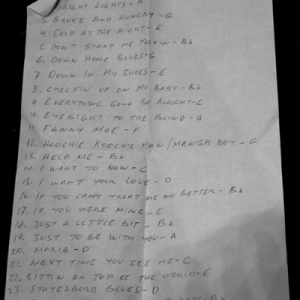 BRIGHT LIGHTS - A
BROKE AND HUNGRY - G
4. COLD AT THE NIGHT - E
5. DON'T START ME TALKIN - Bb
6. DOWN HOME BLUES - G
7. DOWN IN MY SHOES - E
8. CHECKIN' UP ON MY BABY - Bb
9. EVERYTHING GONA BE ALRIGHT - G
10. EYESIGHT TO THE BLIND - A
11. FANNY MAE - F
12. HOOCHIE KOOCHIE MAN / MANISH BOY - G
13. HELP ME - Bb
14. I WANT TO DON - G
15. I WANT YOUR LOVE - D
16. IF YOU CAN'T TREAT ME NO BETTER - Bb
17. IF YOU WERE MINE - E
18. JUST A LITTLE BIT - Bb
19. JUST TO BE WITH YOU - A
20. MARIA - D
21. NEXT TIME YOU SEE ME - C
22. SITTIN ON TOP OF THE WORLD - E
23. STATESBORO BLUES - D